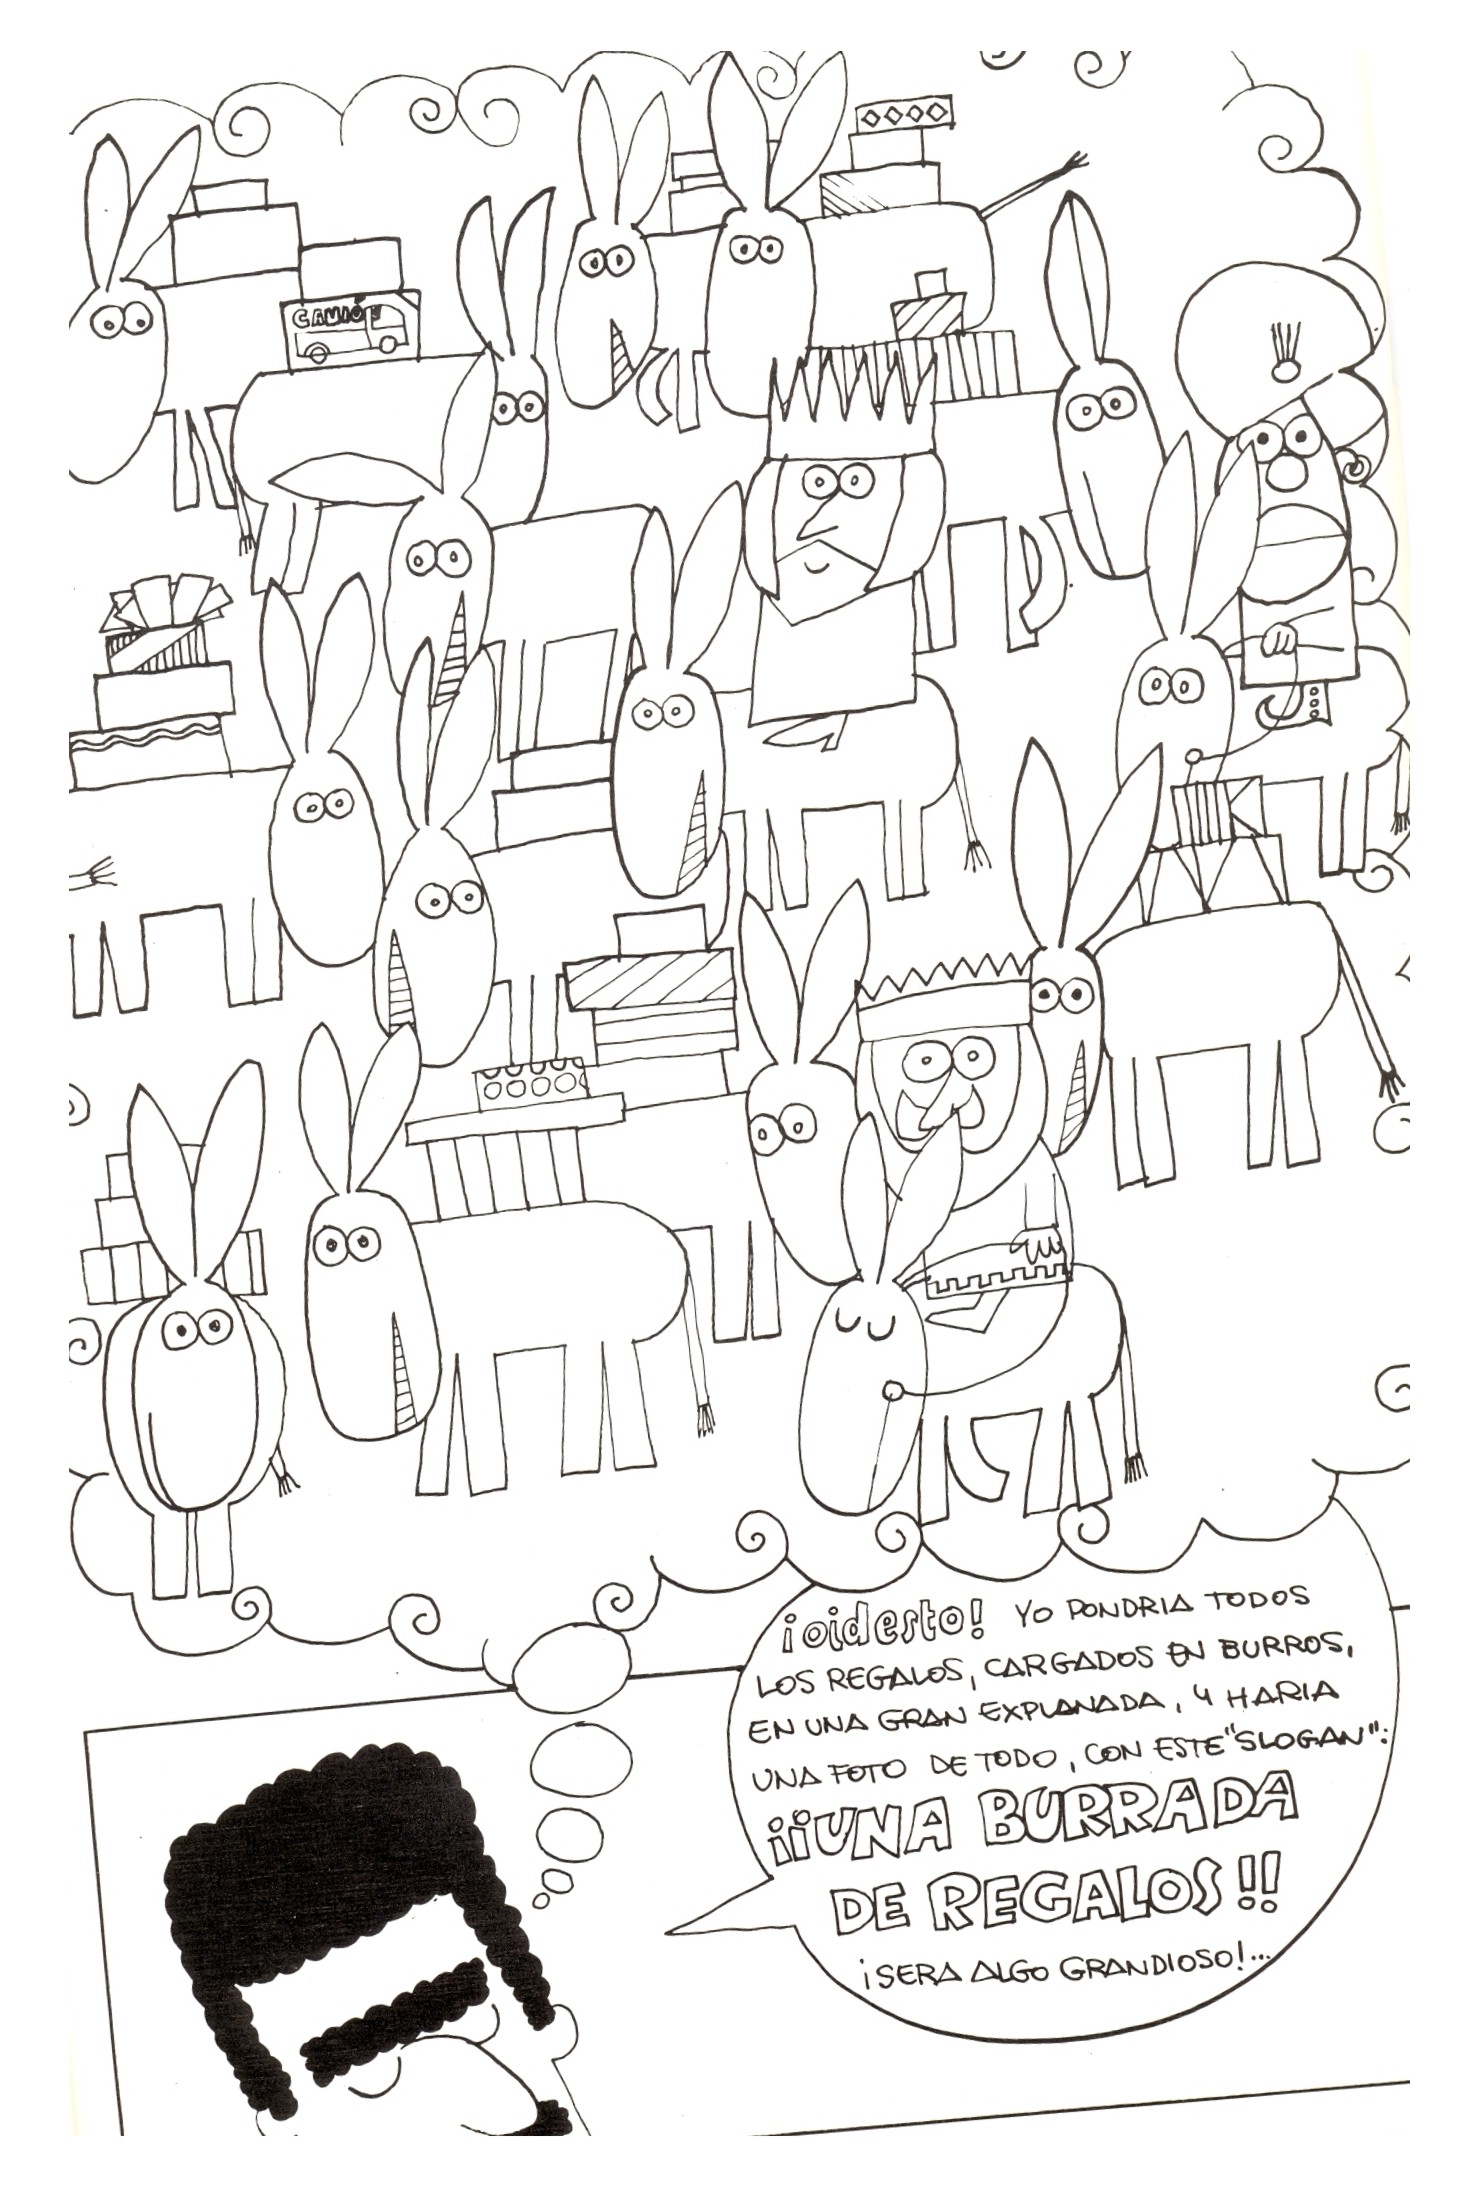 CAMIÓN
¡oid esto! YO PONDRIA TODOS
LOS REGALOS, CARGADOS EN BURROS,
EN UNA GRAN EXPLANADA, Y HARIA
UNA FOTO DE TODO, CON ESTE "SLOGAN":
¡¡UNA BURRADA
DE REGALOS!!
¡SERA ALGO GRANDIOSO!...